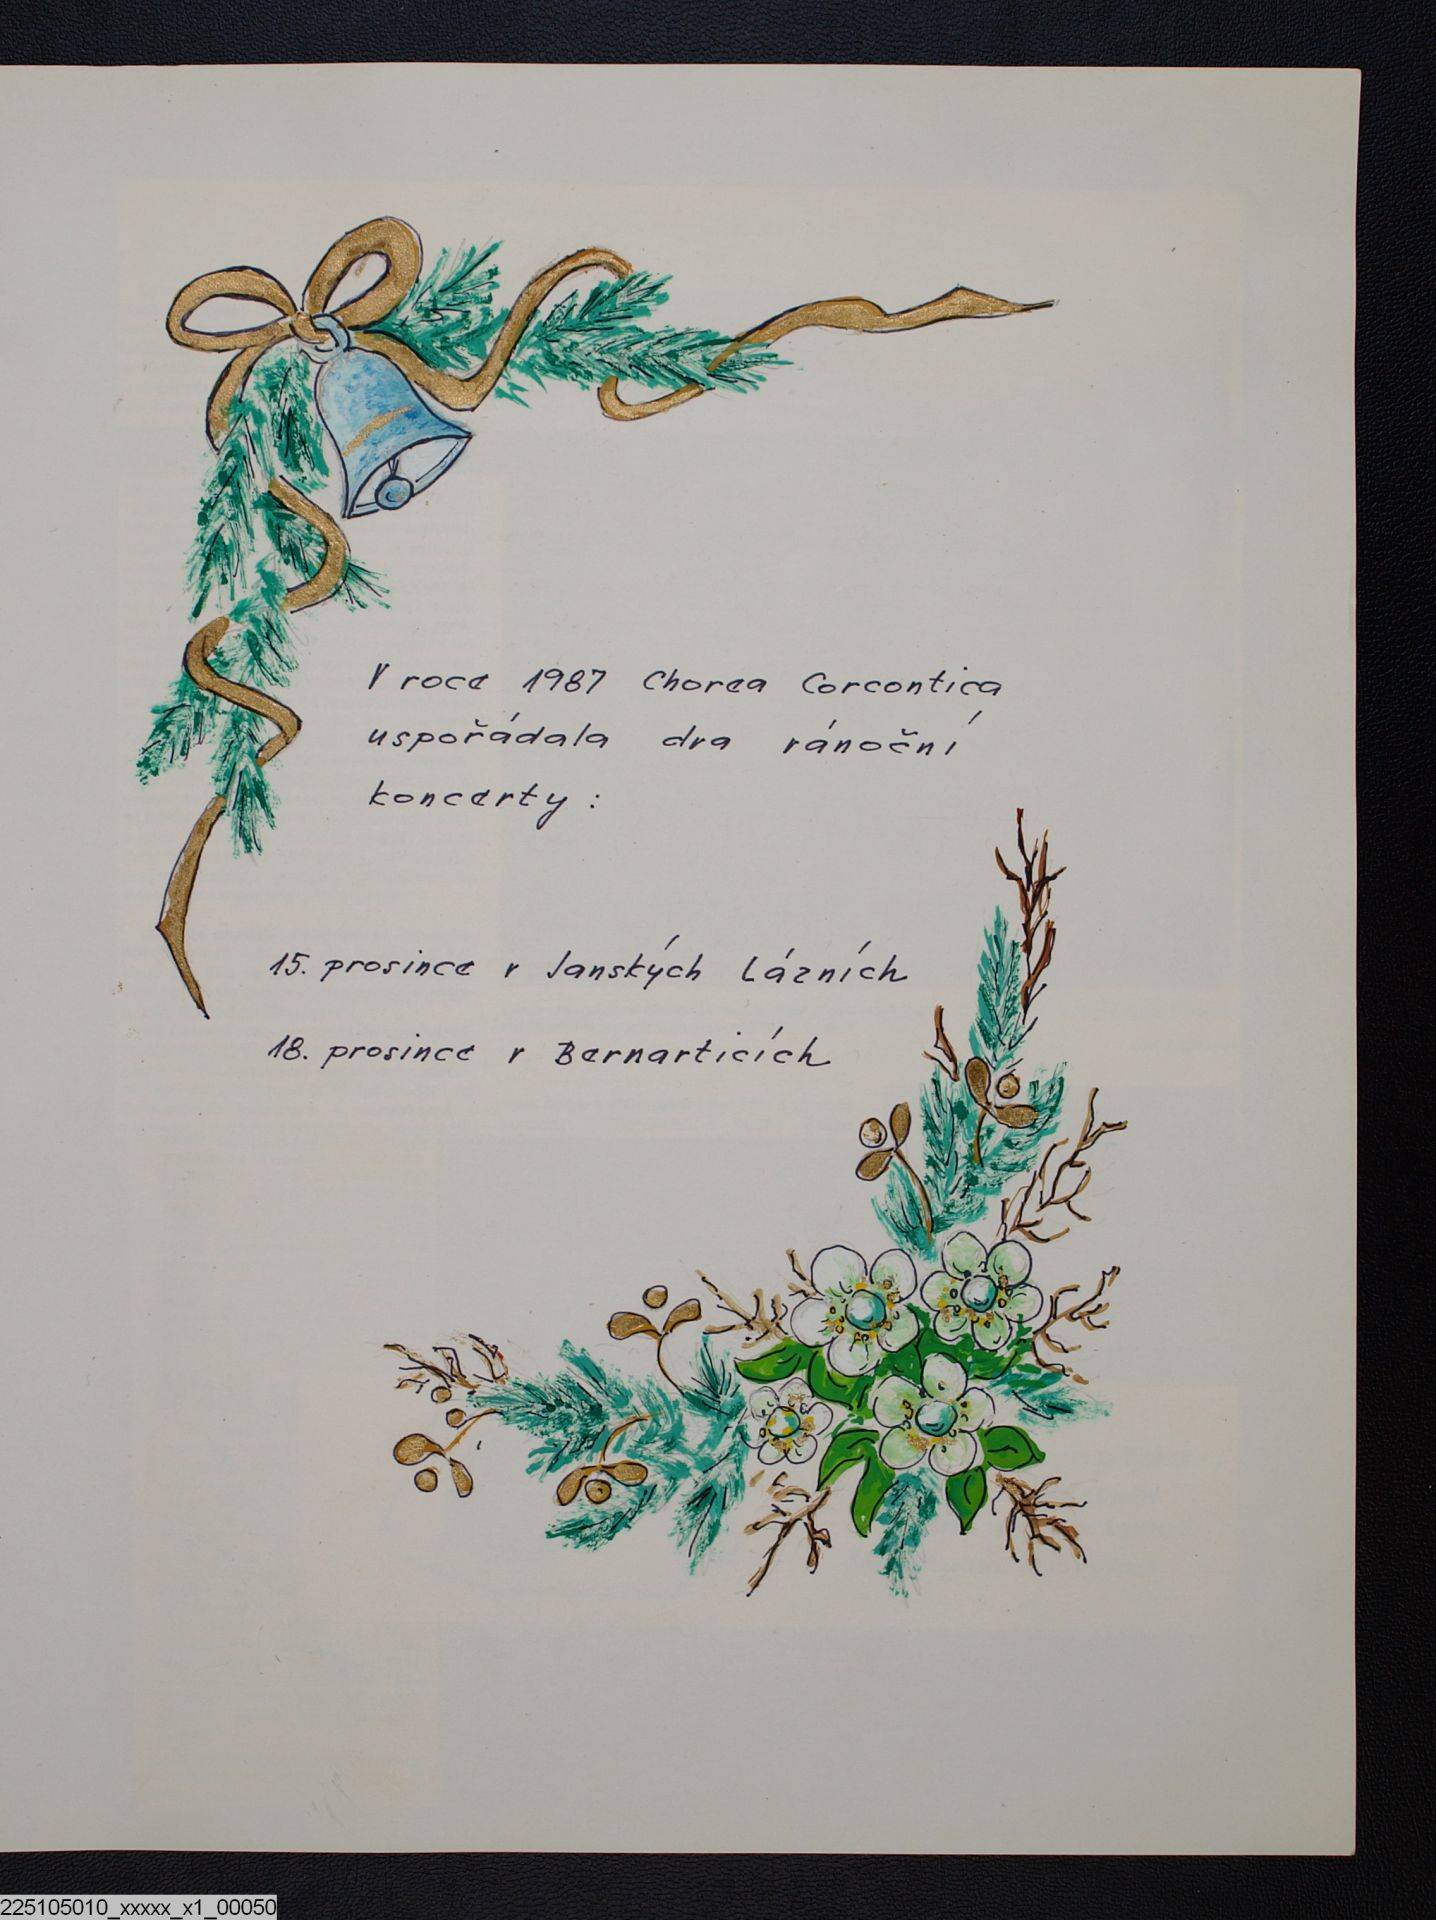 V roce 1987 Chorea Corcontica
uspořádala dva vánoční
koncerty:
15. prosince v Janských Lázních
18. prosince v Bernarticích
225105010_xxxxx_x1_00050